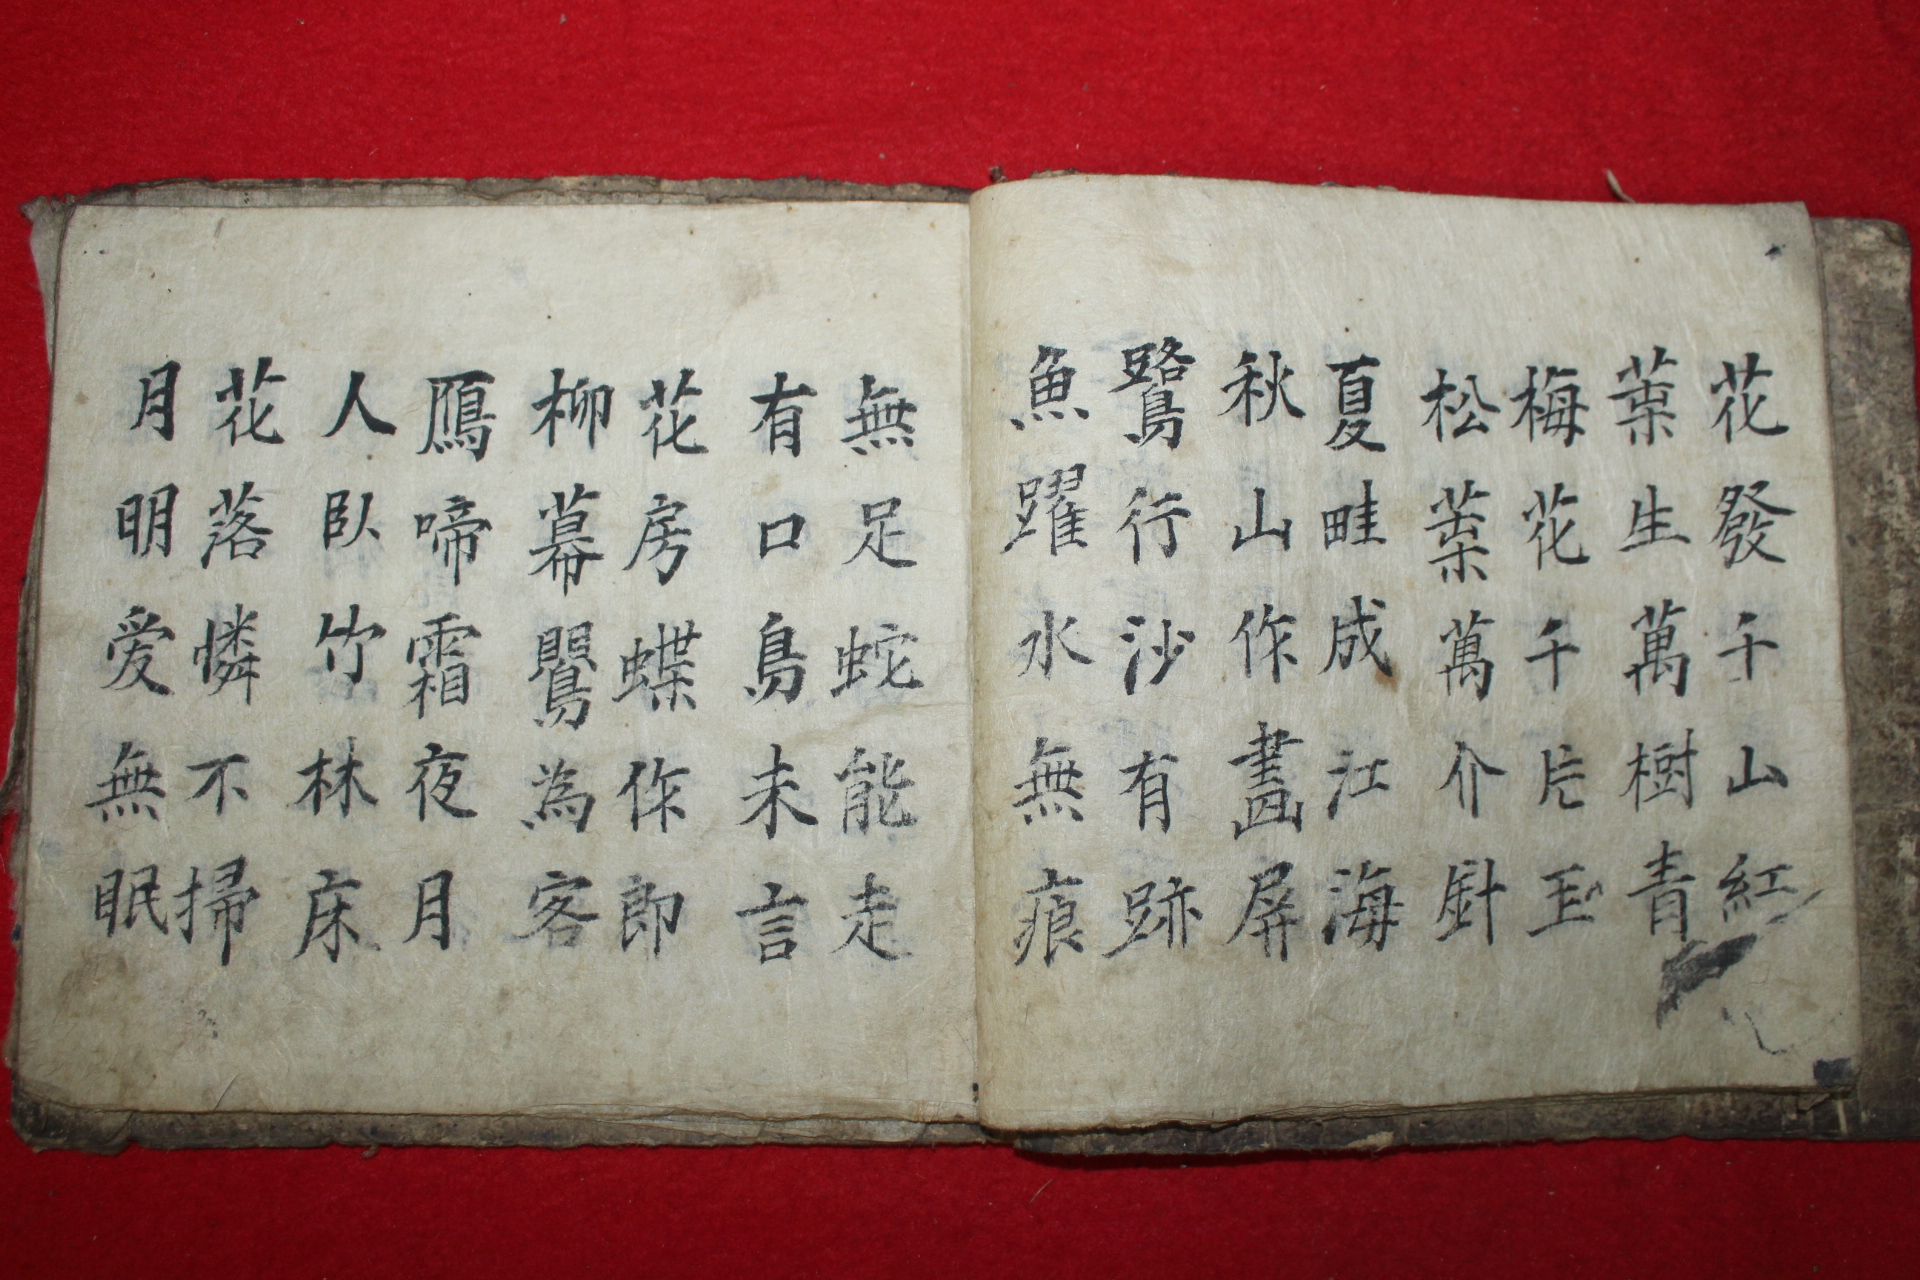 花發千山紅
葉生萬樹青
梅花千片玉
松葉萬介針
夏畦成江海
秋山作畫屏
鷺行沙有跡
魚躍水無痕
無足蛇能走
有口鳥未言
花房蝶作郎
柳幕鸎為客
鴈啼霜夜月
人臥竹林床
花落憐不掃
月明爱無眠